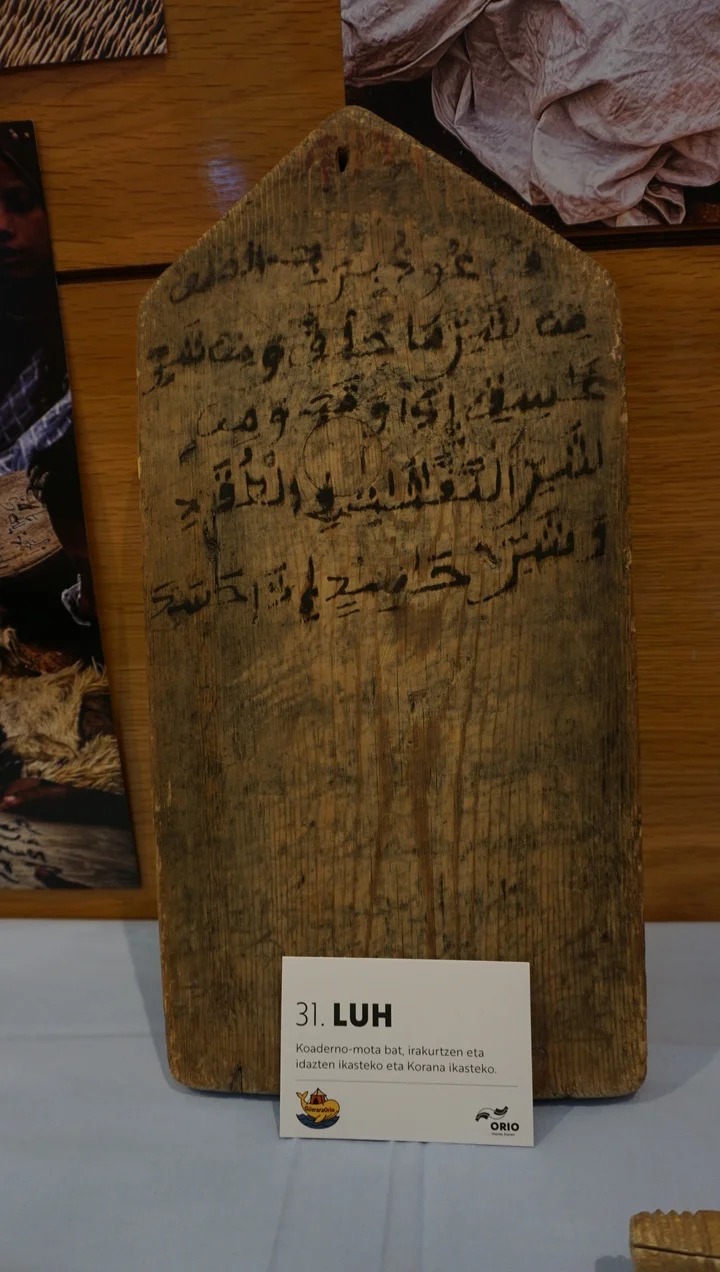 أعوذ برب الفلق
من شر ما خلق ومن شر
غاسق إذا وقب ومن
شَرِّ النَّفَّٰثَٰتِ فِي الْعُقَدِ
وَشَرِّ حَاسِدٍ إِذَا حَسَدَ
31. LUH
Koaderno-mota bat, irakurtzen eta
idazten ikasteko eta Korana ikasteko.
ORIO